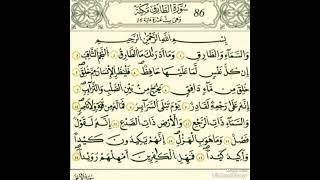 سُورَةُ الطَّارِقِ مَكِّيَّة
86
بِسْمِ اللَّهِ الرَّحْمَٰنِ الرَّحِيمِ
وَالسَّمَآءِ وَالطَّارِقِ ۝ وَمَآ أَدْرَىٰكَ مَا الطَّارِقُ ۝ النَّجْمُ الثَّاقِبُ ۝
إِن كُلُّ نَفْسٍ لَّمَّا عَلَيْهَا حَافِظٌ ۝ فَلْيَنظُرِ الْإِنسَٰنُ مِمَّ خُلِقَ ۝
خُلِقَ مِن مَّآءٍ دَافِقٍ ۝ يَخْرُجُ مِنۢ بَيْنِ الصُّلْبِ وَالتَّرَآئِبِ ۝
إِنَّهُۥ عَلَىٰ رَجْعِهِۦ لَقَادِرٌ ۝ يَوْمَ تُبْلَى السَّرَآئِرُ ۝ فَمَا لَهُۥ مِن قُوَّةٍ وَلَا نَاصِرٍ ۝
وَالسَّمَآءِ ذَاتِ الرَّجْعِ ۝ وَالْأَرْضِ ذَاتِ الصَّدْعِ ۝ إِنَّهُۥ لَقَوْلٌ
فَصْلٌ ۝ وَمَا هُوَ بِالْهَزْلِ ۝ إِنَّهُمْ يَكِيدُونَ كَيْدًا ۝
وَأَكِيدُ كَيْدًا ۝ فَمَهِّلِ الْكَٰفِرِينَ أَمْهِلْهُمْ رُوَيْدًۢا ۝